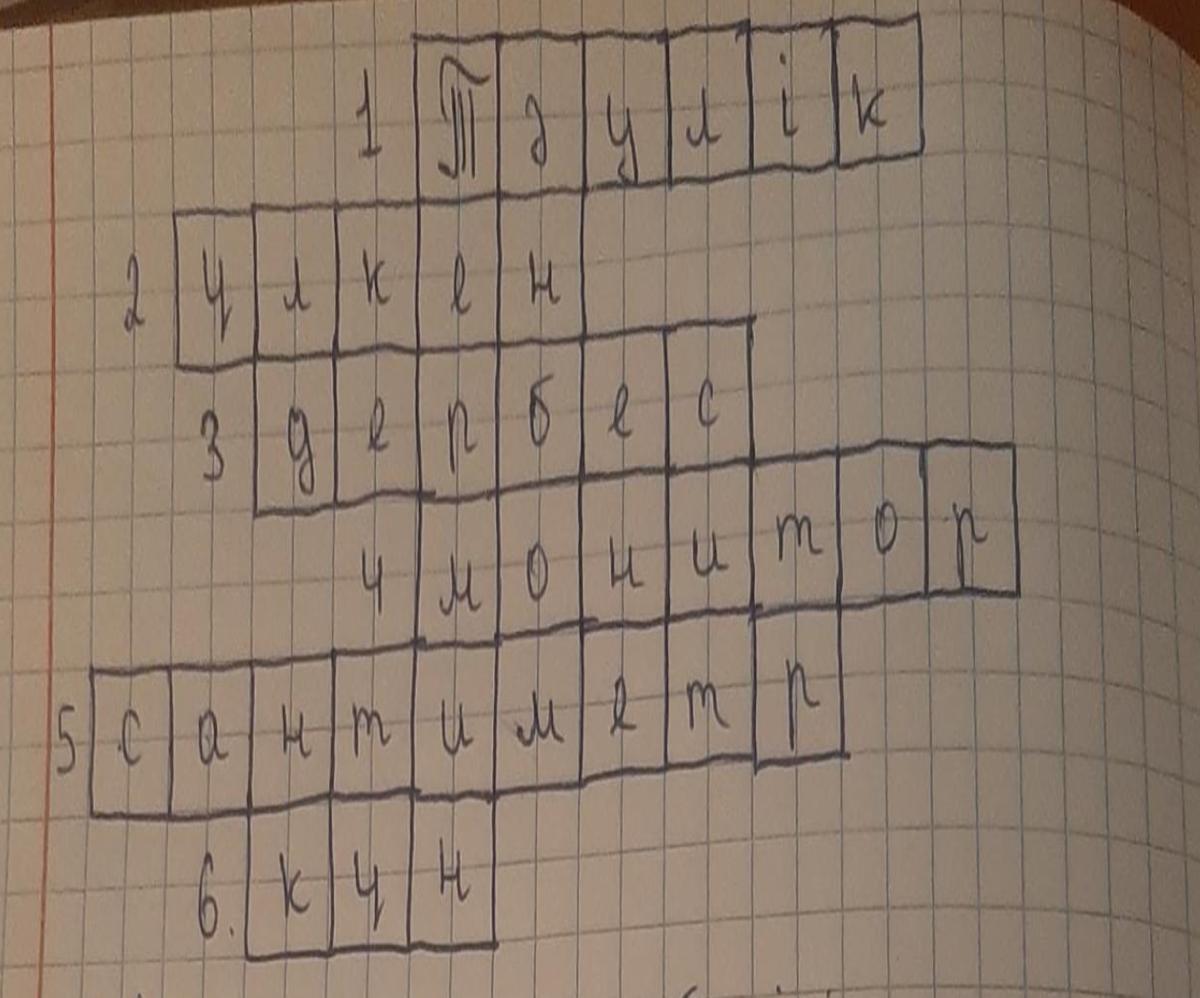 1 Тәулік
2 Үлкен
3 дербес
4 монитор
5 сантиметр
6. күн